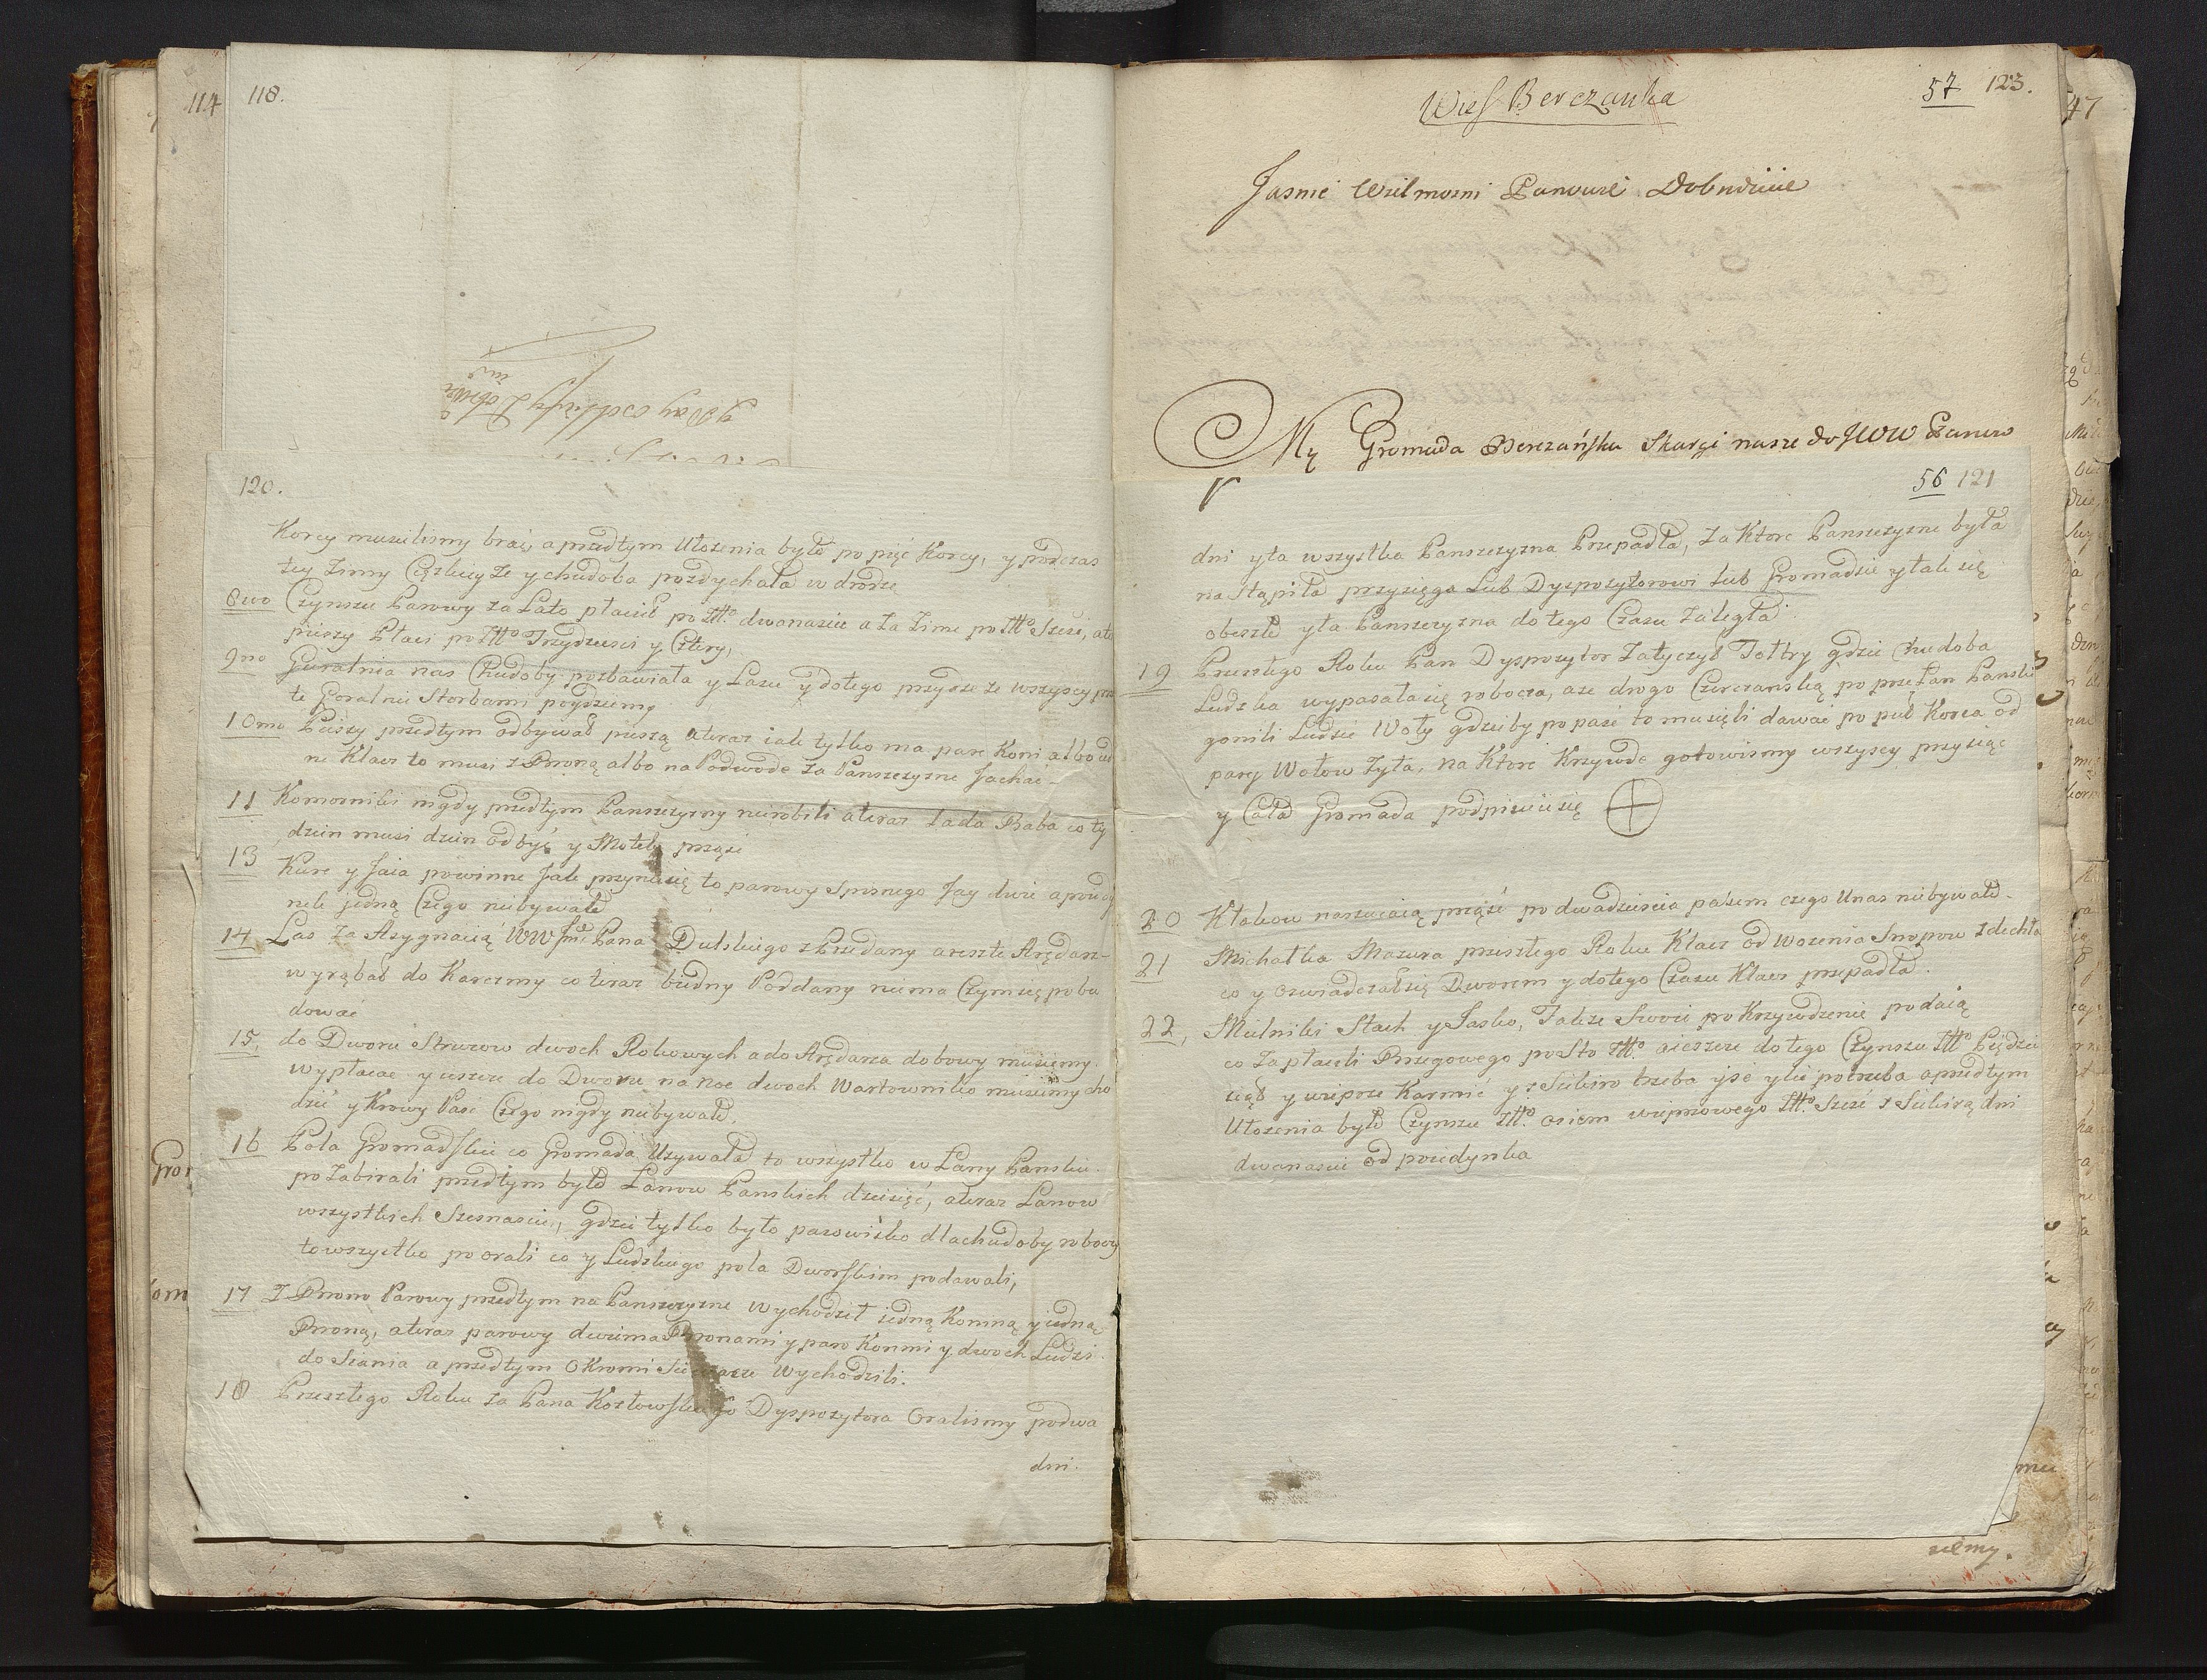 114
118.
120.
Korcy musielismy brać, a przedtym Ułożenia było po pięć Korcy, y podczas
tey Zimy Ciężkiey że y chudoba pozdychała w drodze
8vo Czynszu Parowy za Lato płacił po Złło. dwanascie a za Zime po Złło Szesć, ale
pieszy Płaci po Złło Trzydziesci y Cztery,
9no Guralnia nas Chudoby pozbawiała y Lasu y dotego przydzie że wszyscy prze
te Goralnie Storbami poydziemy
10mo Pieszy przedtym odbywał pieszą a teraz iak tylko ma pare Koni albo
ne Klacz to musi z Broną albo na Podwode za Panszczyzne Jachac
11 Komorniki nigdy przedtym Panszczyzny nierobili a teraz kada Baba co ty
dzien musi dzien odbyć y Motek prząść
13 Kure y Jaia powinne Jak przyniesię to parowy Spornego Jay dwie a poied
nek jedną Czego niebywało
14 Las za Asygnacią WW Jmć Pana Dulskiego zPrzedany a reszte Arędarz
wyrąbał do Karczmy co teraz biedny Poddany niema Czym się pobu
dować
15. do Dworu Strużow dwoch Rokowych a do Arędarza dobowy musiemy
wypłacac y ieszcze do Dworu na noc dwoch Wartowniko musiemy cho
dzić y Krowy Paść Czego nigdy niebywało.
16 Pola Gromadskie co Gromada Używała to wszystko w Łany Panskie
pozabirali przedtym było Łanow Panskich dziesięć, a teraz Łanow
wszystkich Szesnascie, gdzie tylko było pasowisko dla chudoby roboczy
to wszystko poorali co y Ludzkiego pola Dworskim podawali,
17 Z Brono Parowy przedtym na Panszczyzne Wychodzeł iedną Konną y iedną
Broną, a teraz parowy dwiema Bronami y paro Konmi y dwoch Ludzi
do Siania a przedtym Okromi Siewacze Wychodzili.
18 Przeszłego Roku za Pana Kozłowskiego Dyspozytora Oralismy podwa
dni.
Wieś Berczanka
57 123.
Jasnie Wielmozni Panowie Dobrdziie
My Gromada Berczańska Skargi nasze do JWW Panow
56 121
dni y ta wszystka Panszczyzna Przepadła, za Ktore Panszczyzne była
nastąpiła przysięga Lub Dyspozytorowi lub Gromadzie y tak się
obeszło y ta Panszczyzna do tego Czasu Zaległa
19 Przeszłego Roku Pan Dyspozytor Zatyczył Toltry gdzie Chudoba
Ludzka wypasała się robocza, a że drogo Czerczanską poprzez Łan Panski
gonili Ludzie Woły gdzieby popaść to musięli dawać po pul Korca od
pary Wołow Zyta, na Ktore Krzywde gotowismy wszyscy przysiąc
y Cała Gromada podpisuiesię
20 Kłakow narzucaią prząść po dwadziescia pasem czego Unas niebywało.
21 Michałka Mazura przeszłego Roku Klacz od Wożenia Snopow Zdechła
co y oswiadczałsię Dworem y dotego Czasu Klacz przepadła.
22, Mielniki Stach y Jasko, Także Swoie poKrzywdzenie podaią
co Zapłacili Brzegowego po Sto Złło. a ieszcze do tego Czynszu Złło Piędzie
siąt y wieprze Karmić y z Siekiro trzeba iść y lie potrzeba a przedtym
Ułożenia było Czynszu Złło. osiem wieprzowego Złło. Szesć z Siekirą dni
dwanascie od poiedynka
47
Gro
mu